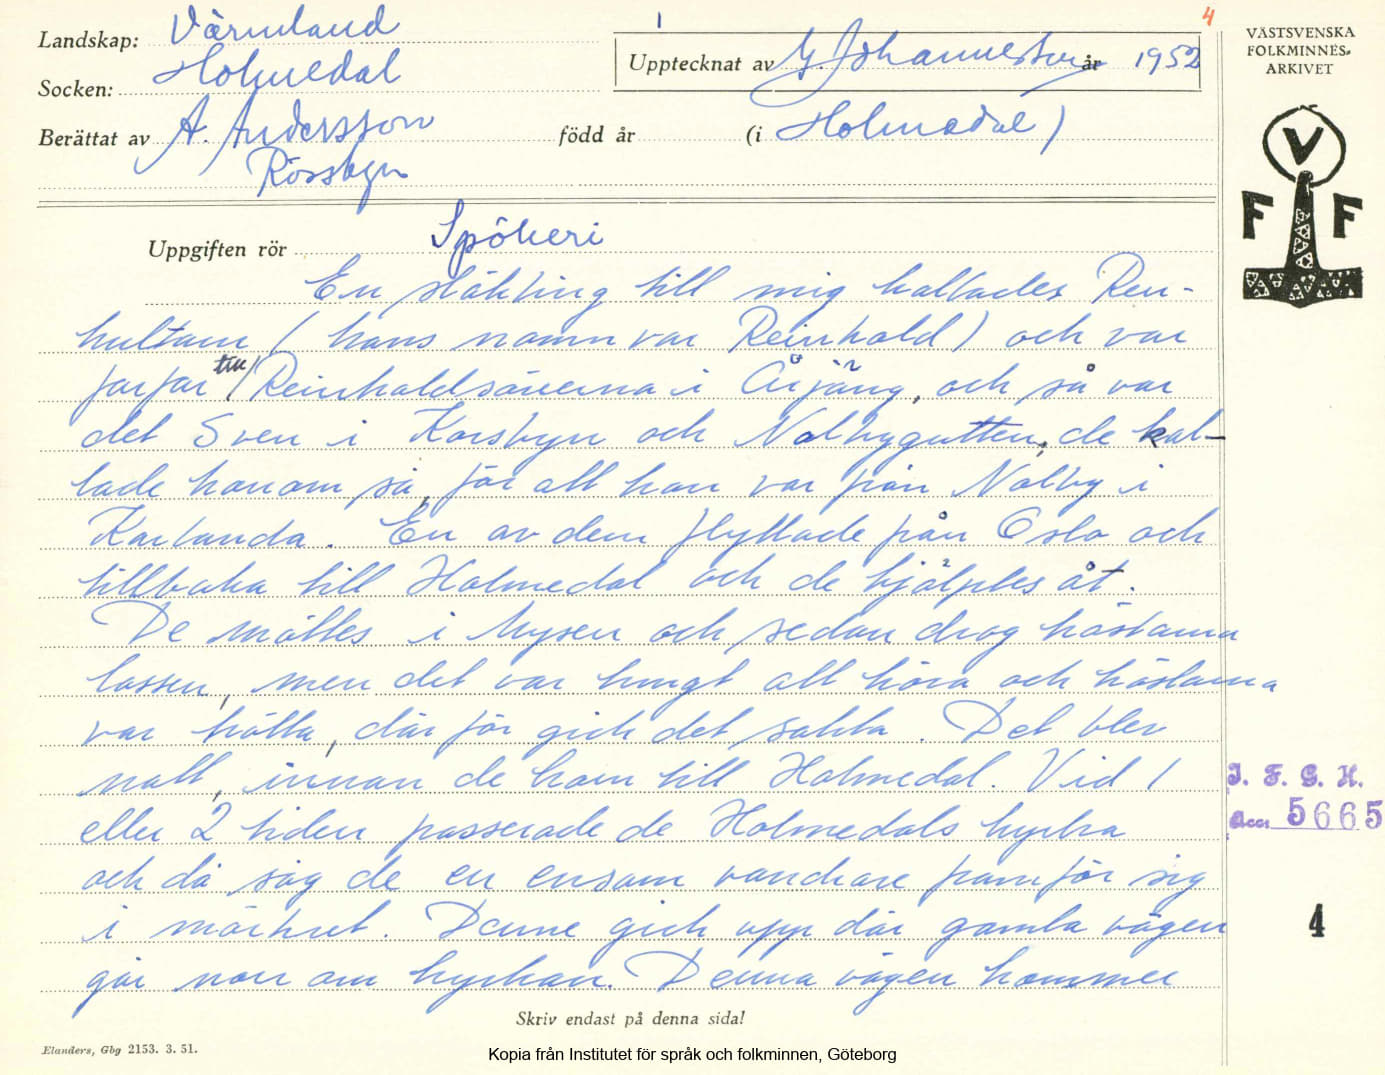 1
4
Landskap: Värmland
Socken: Holmedal
Upptecknat av G. Johannesson år 1952
Berättat av A. Andersson född år (i Holmedal)
Rössbyn
VÄSTSVENSKA
FOLKMINNES-
ARKIVET
V
F F
Uppgiften rör Spökeri
En släkting till mig kallades Ren-
hultarn (hans namn var Reinhold) och var
farfar till Reinholdsönerna i Årjäng, och så var
det Sven i Korsbyn och Nolbygutten, de kal-
lade honom så, för att han var från Nolby i
Karlanda. En av dem flyttade från Oslo och
tillbaka till Holmedal och de hjälptes åt.
De möttes i Mysen och sedan drog hästarna
lassen, men det var tungt att köra och hästarna
var trötta, därför gick det sakta. Det blev
natt, innan de kom till Holmedal. Vid 1
eller 2 tiden passerade de Holmedals kyrka
och då såg de en ensam vandrare framför sig
i mörkret. Denne gick upp där gamla vägen
går norr om kyrkan. Denna vägen kommer
I. F. G. H.
Acc. 5665
4
Skriv endast på denna sida!
Elanders, Gbg 2153. 3. 51.
Kopia från Institutet för språk och folkminnen, Göteborg